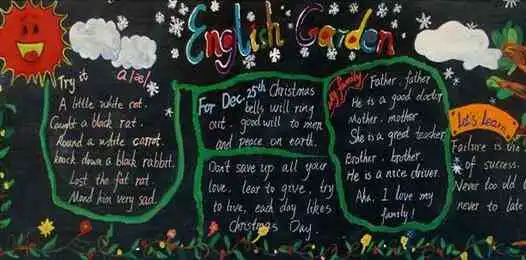 English Garden
Try it a /æ/
A little white rat.
Caught a black rat.
Round a white carrot.
knock down a black rabbit.
Lost the fat rat.
Mand him very sad.
For Dec. 25th Christmas
bells will ring
out, good will to men
and peace on earth.
Don't save up all your
love, lear to give, try
to live, each day likes
Christmas Day.
My family
Father, father
He is a good doctor
Mother, mother
She is a great teacher
Brother, brother.
He is a nice driver.
Aha, I love my
family!
Let's learn
Failure is
of success.
Never too old
never to late